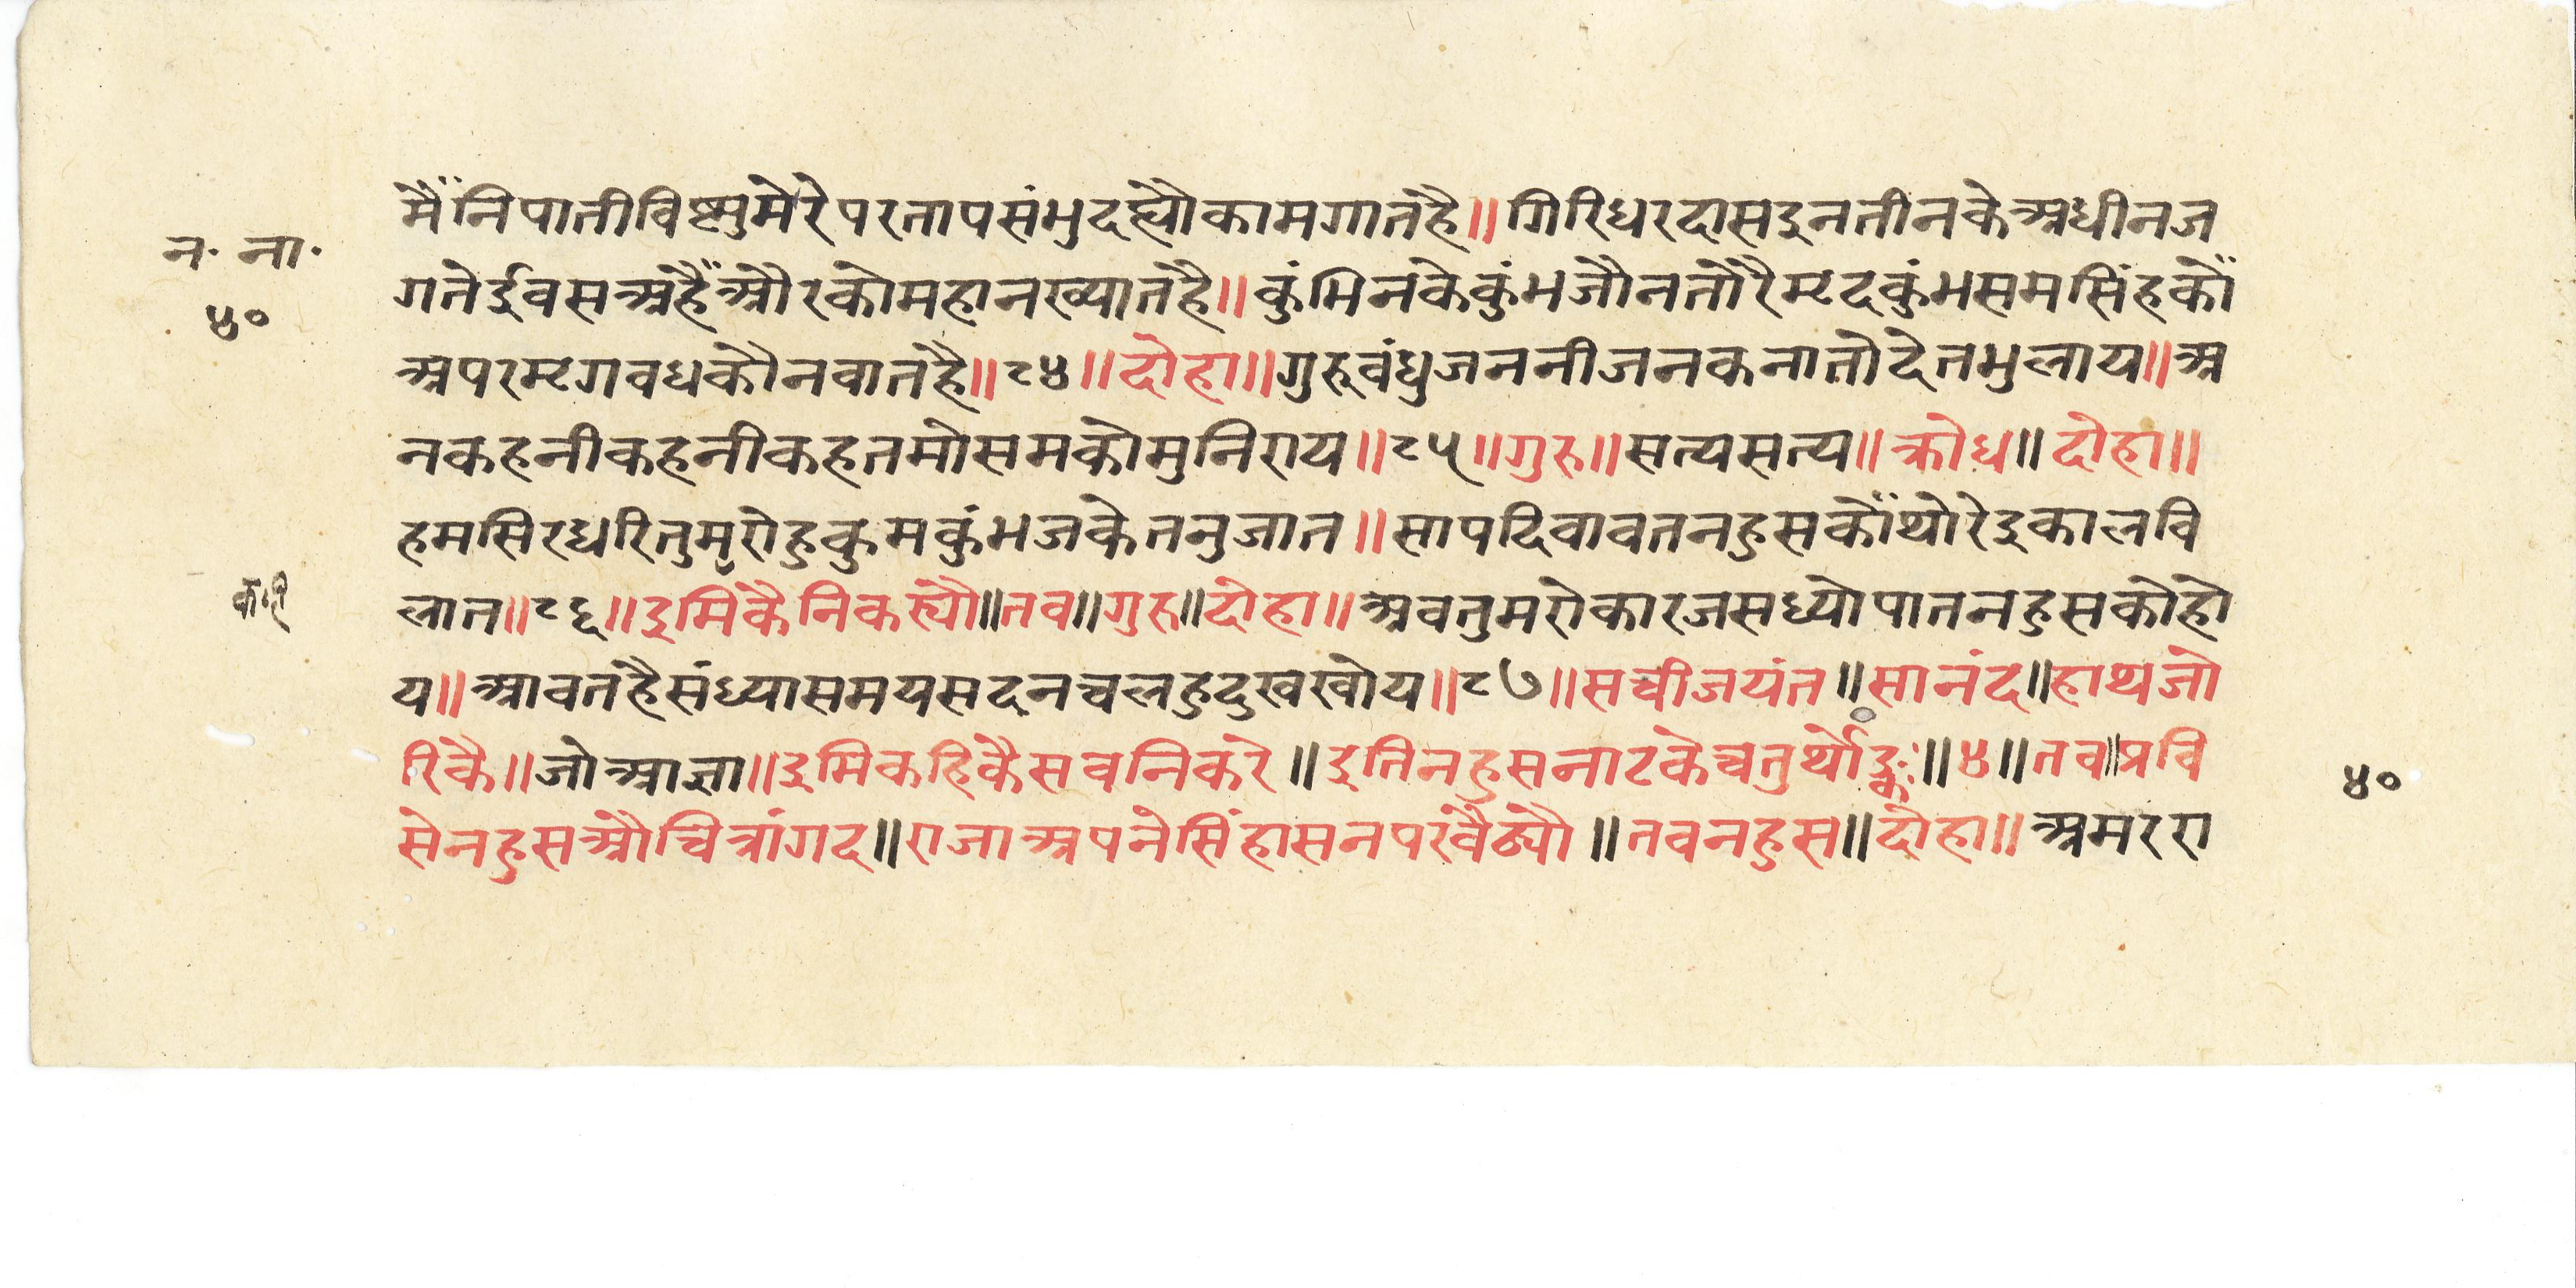 न॰ ना॰
४०
मैंनिपातीविष्णुमेरेपरतापसंभुदह्यौकामगातहै॥गिरिधरदासइनतीनकेअधीनज
गतेईवसअहैंऔरकोमहानख्यातहै॥कुंभिनकेकुंभजौनतोरैमृदकुंभसमसिंहकों
अपरमृगवधकौनवातहै॥८४॥दोहा॥गुरूवंधुजननीजनकनातोदेतभुलाय॥अ
नकहनीकहनीकहतमोसमकोमुनिराय॥८५॥गुरु॥सत्यसत्य॥क्रोध॥दोहा॥
हमसिरधरितुमरोहुकुमकुंभजकेतनुजात॥सापदिवावतनहुसकोंथोरेइकालवि
लात॥८६॥इमिकैनिकस्यौ॥तव॥गुरु॥दोहा॥अवतुमरोकारजसध्योपातनहुसकोहो
कहि
य॥आवतहैसंध्यासमयसदनचलहुदुखखोय॥८७॥सचीजयंत॥सानंद॥हाथजो
रिकै॥जोआज्ञा॥इमिकहिकैसवनिकरे॥इतिनहुसनाटकेचतुर्थोङ्कः॥४॥तव॥प्रवि
४०
सेनहुसऔचित्रांगद॥राजाअपनेसिंहासनपरवैठ्यौ॥तवनहुस॥दोहा॥अमररा